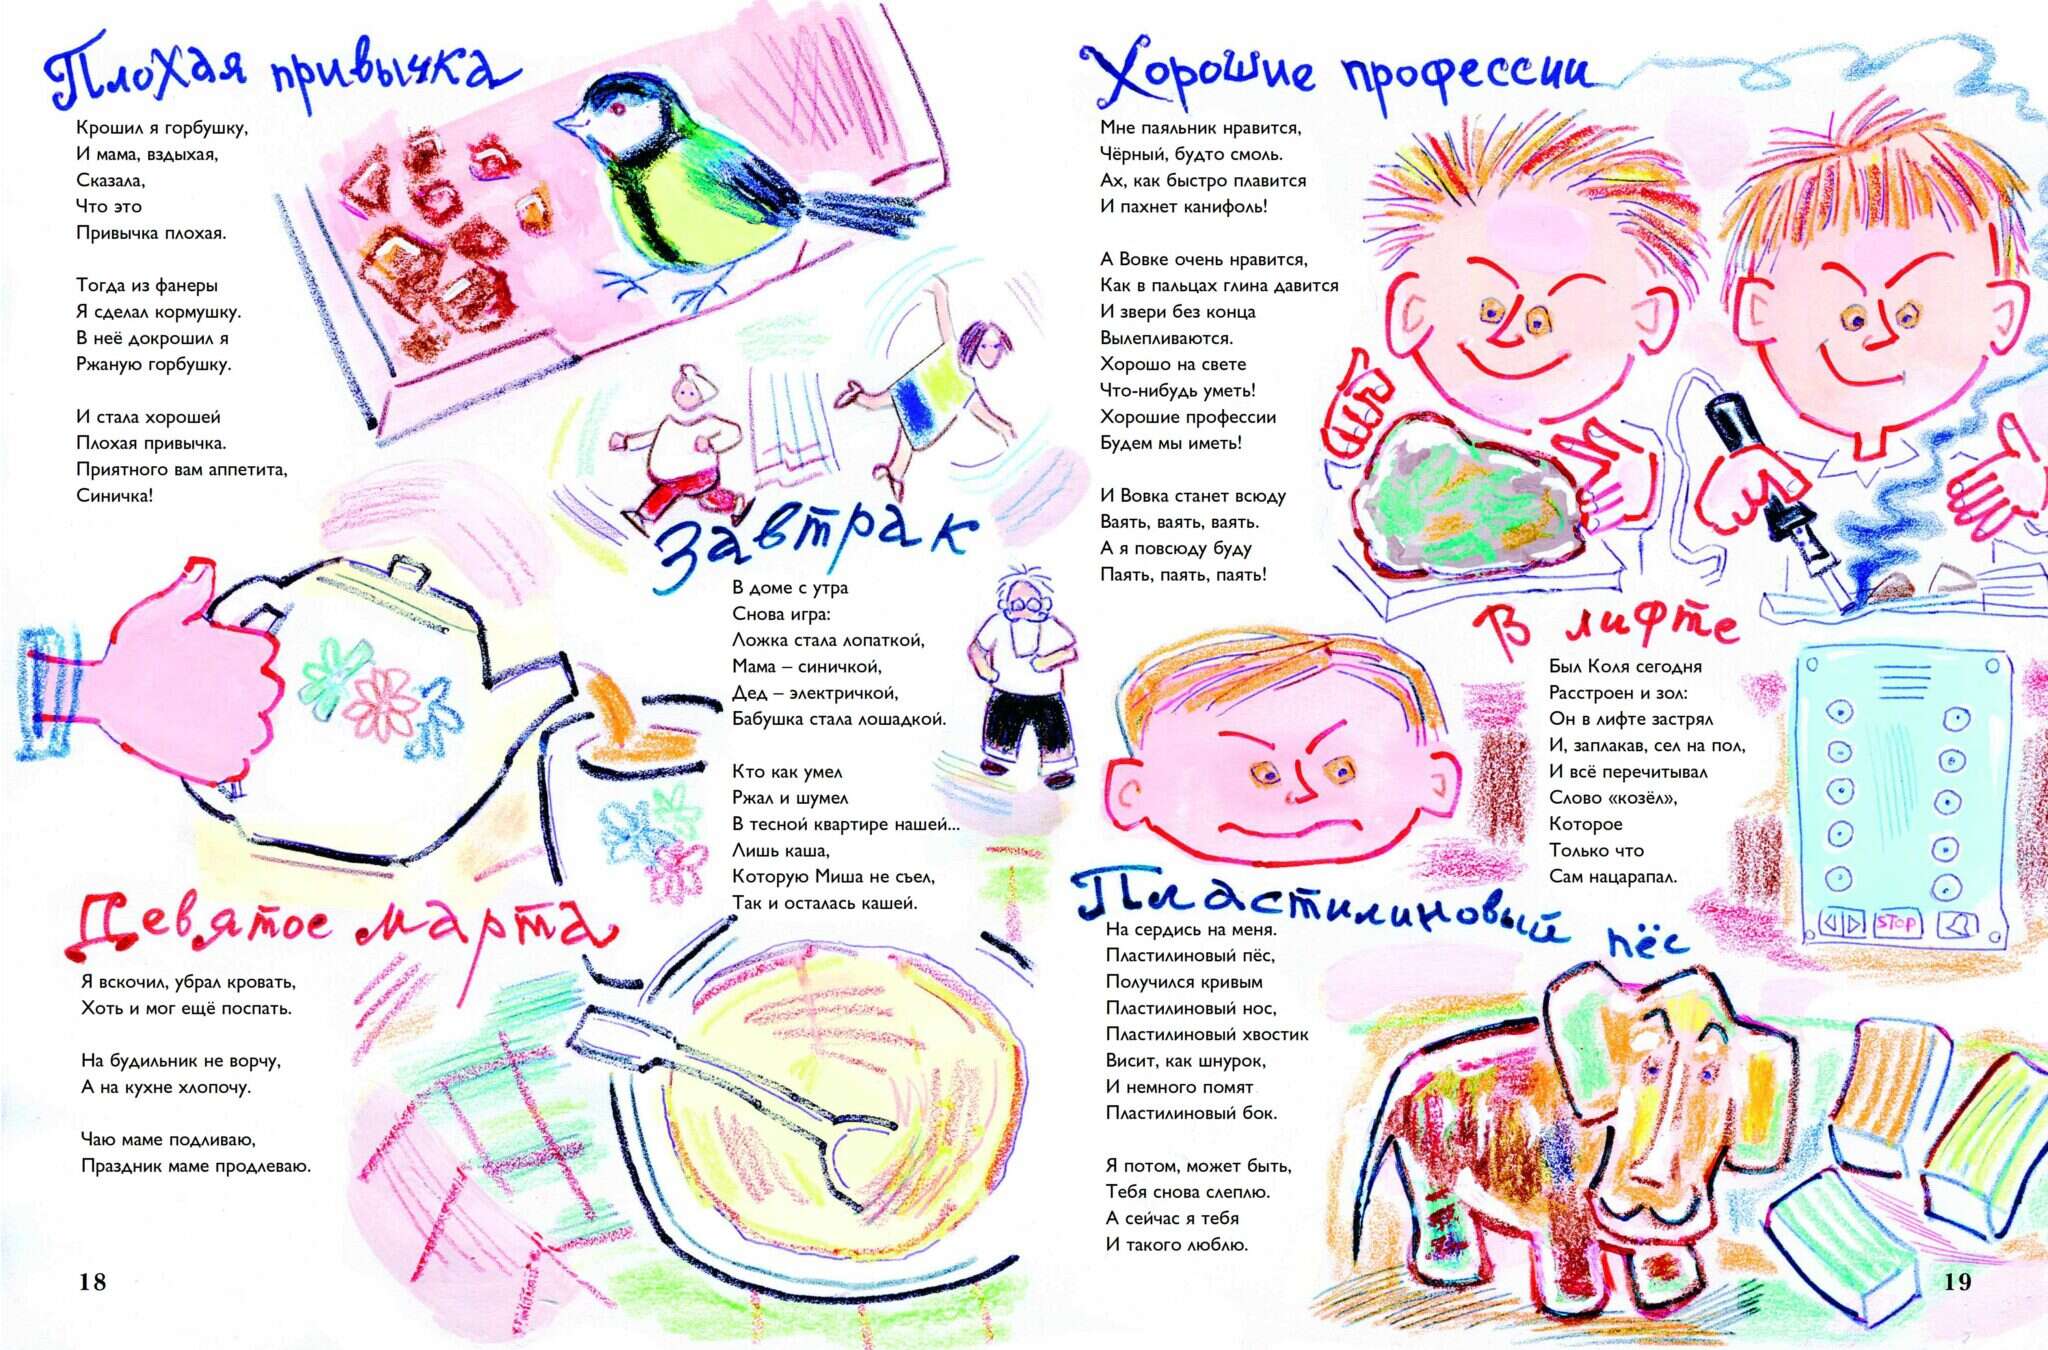 Плохая привычка
Крошил я горбушку,
И мама, вздыхая,
Сказала,
Что это
Привычка плохая.
Тогда из фанеры
Я сделал кормушку.
В неё докрошил я
Ржаную горбушку.
И стала хорошей
Плохая привычка.
Приятного вам аппетита,
Синичка!
Завтрак
В доме с утра
Снова игра:
Ложка стала лопаткой,
Мама – синичкой,
Дед – электричкой,
Бабушка стала лошадкой.
Кто как умел
Ржал и шумел
В тесной квартире нашей...
Лишь каша,
Которую Миша не съел,
Так и осталась кашей.
Девятое марта
Я вскочил, убрал кровать,
Хоть и мог ещё поспать.
На будильник не ворчу,
А на кухне хлопочу.
Чаю маме подливаю,
Праздник маме продлеваю.
18
Хорошие профессии
Мне паяльник нравится,
Чёрный, будто смоль.
Ах, как быстро плавится
И пахнет канифоль!
А Вовке очень нравится,
Как в пальцах глина давится
И звери без конца
Вылепливаются.
Хорошо на свете
Что-нибудь уметь!
Хорошие профессии
Будем мы иметь!
И Вовка станет всюду
Ваять, ваять, ваять.
А я повсюду буду
Паять, паять, паять!
В лифте
Был Коля сегодня
Расстроен и зол:
Он в лифте застрял
И, заплакав, сел на пол,
И всё перечитывал
Слово «козёл»,
Которое
Только что
Сам нацарапал.
STOP
Пластилиновый пёс
На сердись на меня.
Пластилиновый пёс,
Получился кривым
Пластилиновый нос,
Пластилиновый хвостик
Висит, как шнурок,
И немного помят
Пластилиновый бок.
Я потом, может быть,
Тебя снова слеплю.
А сейчас я тебя
И такого люблю.
19